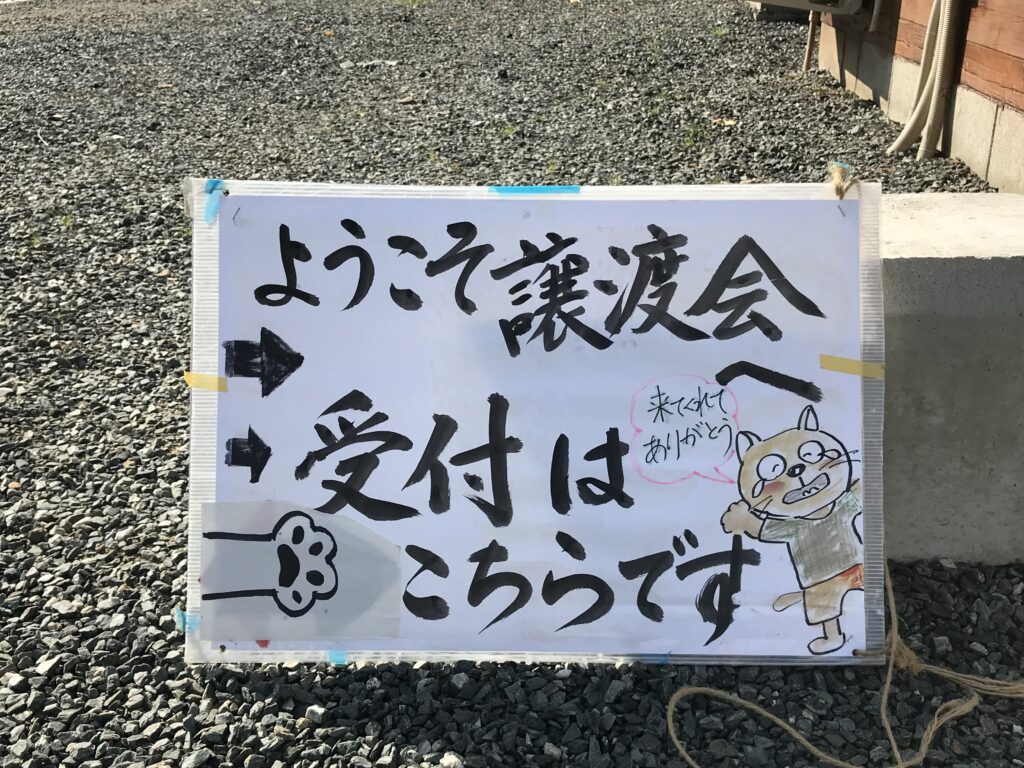 ようこそ譲渡会
へ
受付は
こちらです
来てくれて
ありがとう